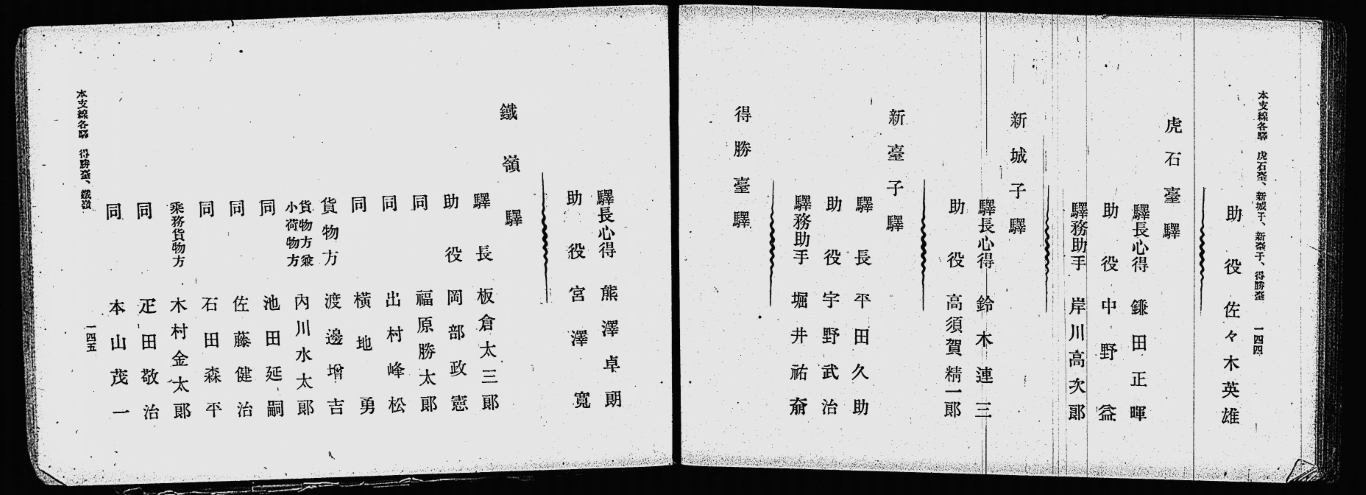 本支線各驛 虎石臺、新城子、新臺子、得勝臺 一四四
助役 佐々木英雄
虎石臺驛
驛長心得 鎌田正暉
助役 中野益
驛務助手 岸川高次郞
新城子驛
驛長心得 鈴木連三
助役 高須賀精一郞
新臺子驛
驛長 平田久助
助役 宇野武治
驛務助手 堀井祐齋
得勝臺驛
驛長心得 熊澤卓朗
助役 宮澤寬
鐵嶺驛
驛長 板倉太三郞
助役 岡部政憲
同 福原勝太郞
同 出村峰松
同 橫地勇
貨物方 渡邊增吉
貨物方兼小荷物方 內川水太郞
同 池田延嗣
同 佐藤健治
同 石田森平
乘務貨物方 木村金太郞
同 疋田敬治
同 本山茂一
本支線各驛 得勝臺、鐵嶺 一四五